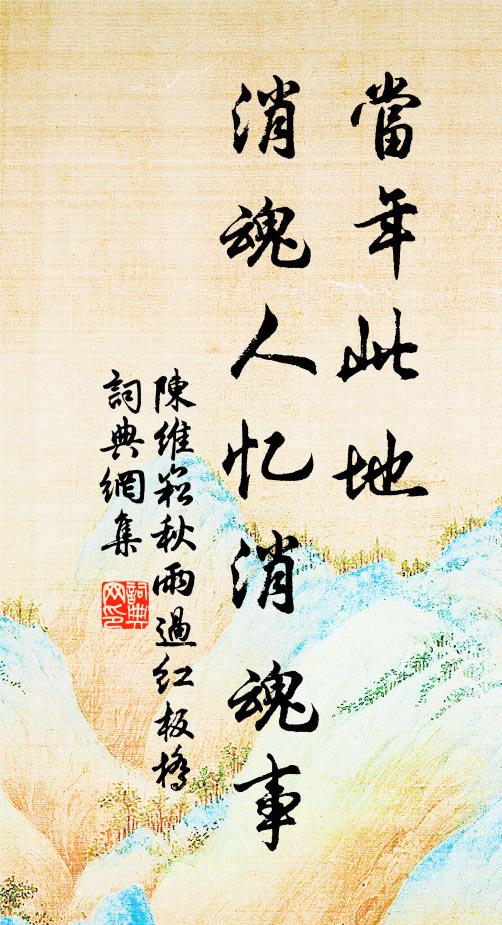 當年此地
消魂人忆消魂事
陳維崧秋雨過红板橋
詞典網集
詞典
网印